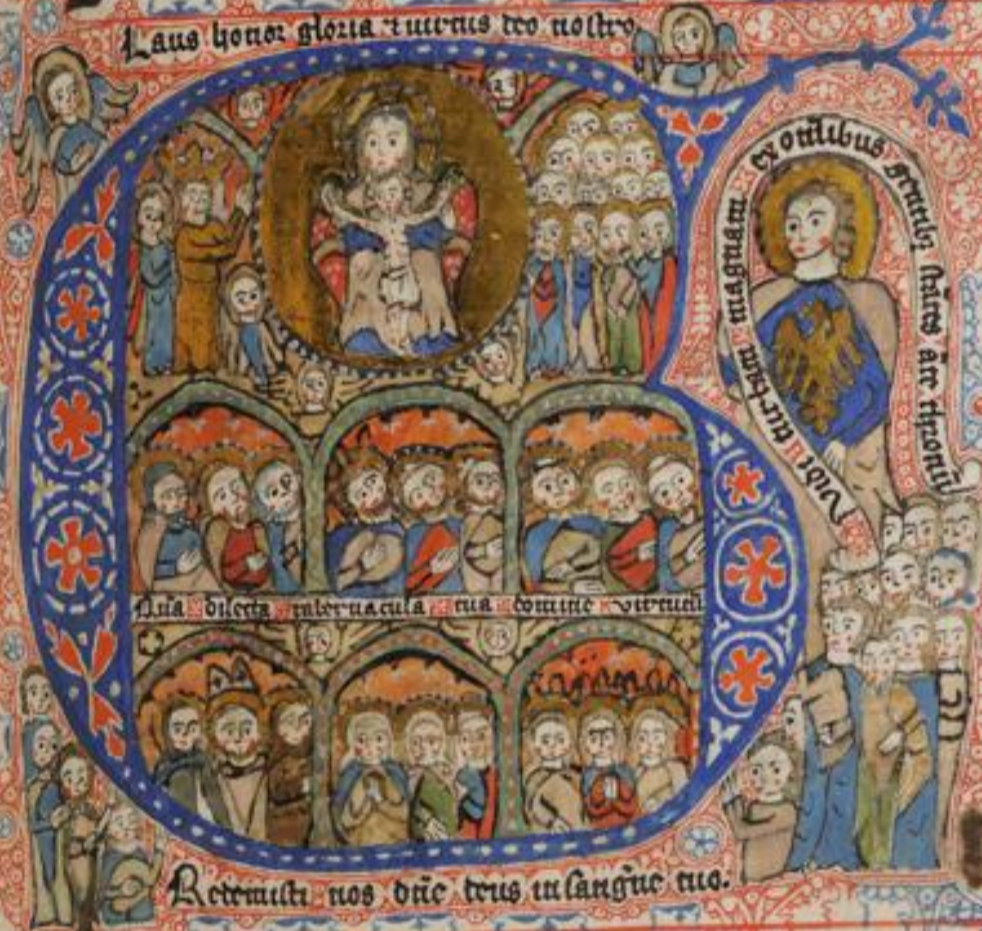 Laus honor gloria ⁊ uirtus deo nostro
Vidi turbam magnam ex om̅ibus gentibꝫ stātes an̄te thronū
Qua̅ dilecta tabernacula tua domine uirtutū
Redemisti nos dn̅e deus in sangᷝne tuo.